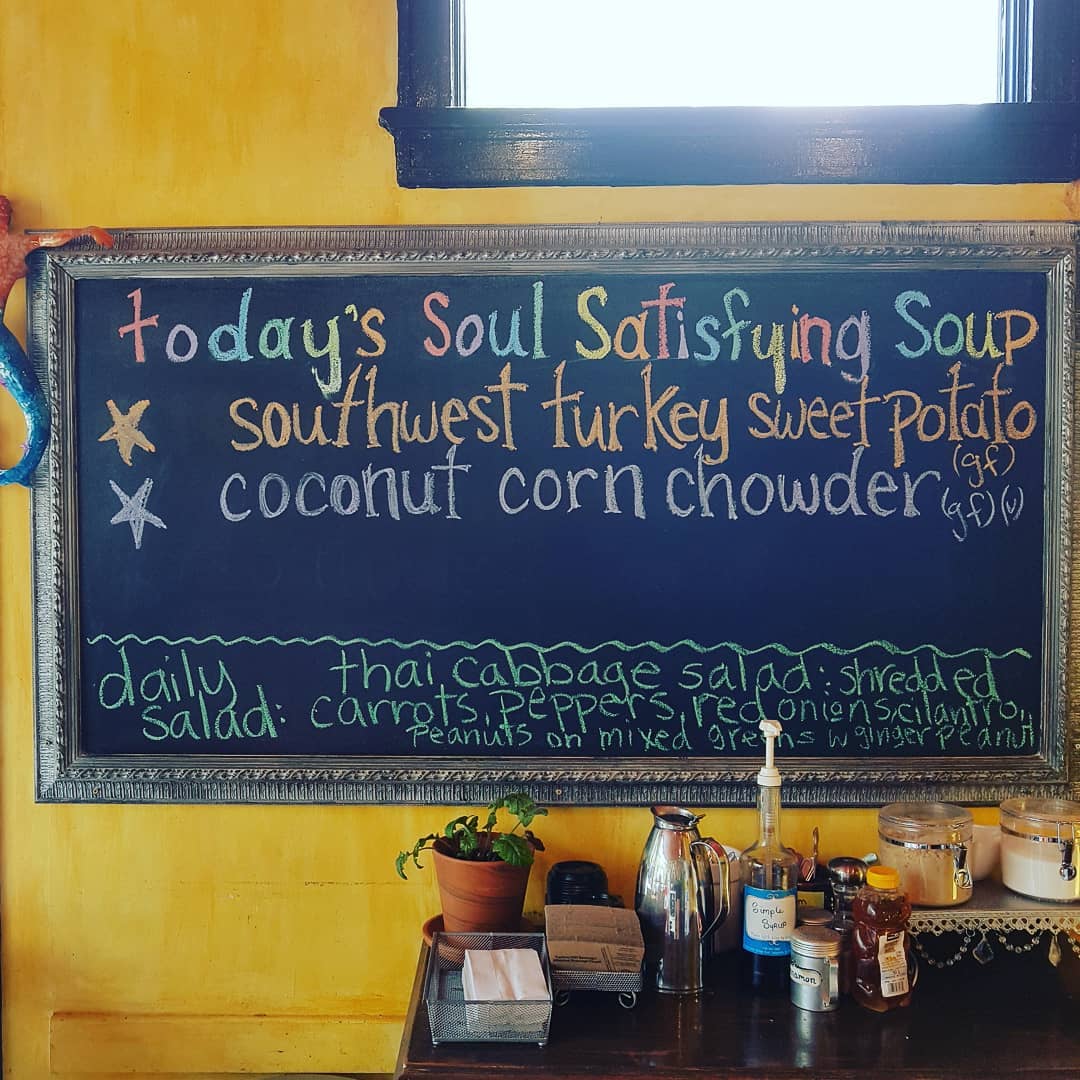 today's Soul Satisfying Soup
southwest turkey sweet potato
(gf)
coconut corn chowder (gf)(v)
daily salad:
thai cabbage salad: shredded
carrots, peppers, red onions, cilantro,
peanuts on mixed greens w ginger peanut
Simple
Syrup